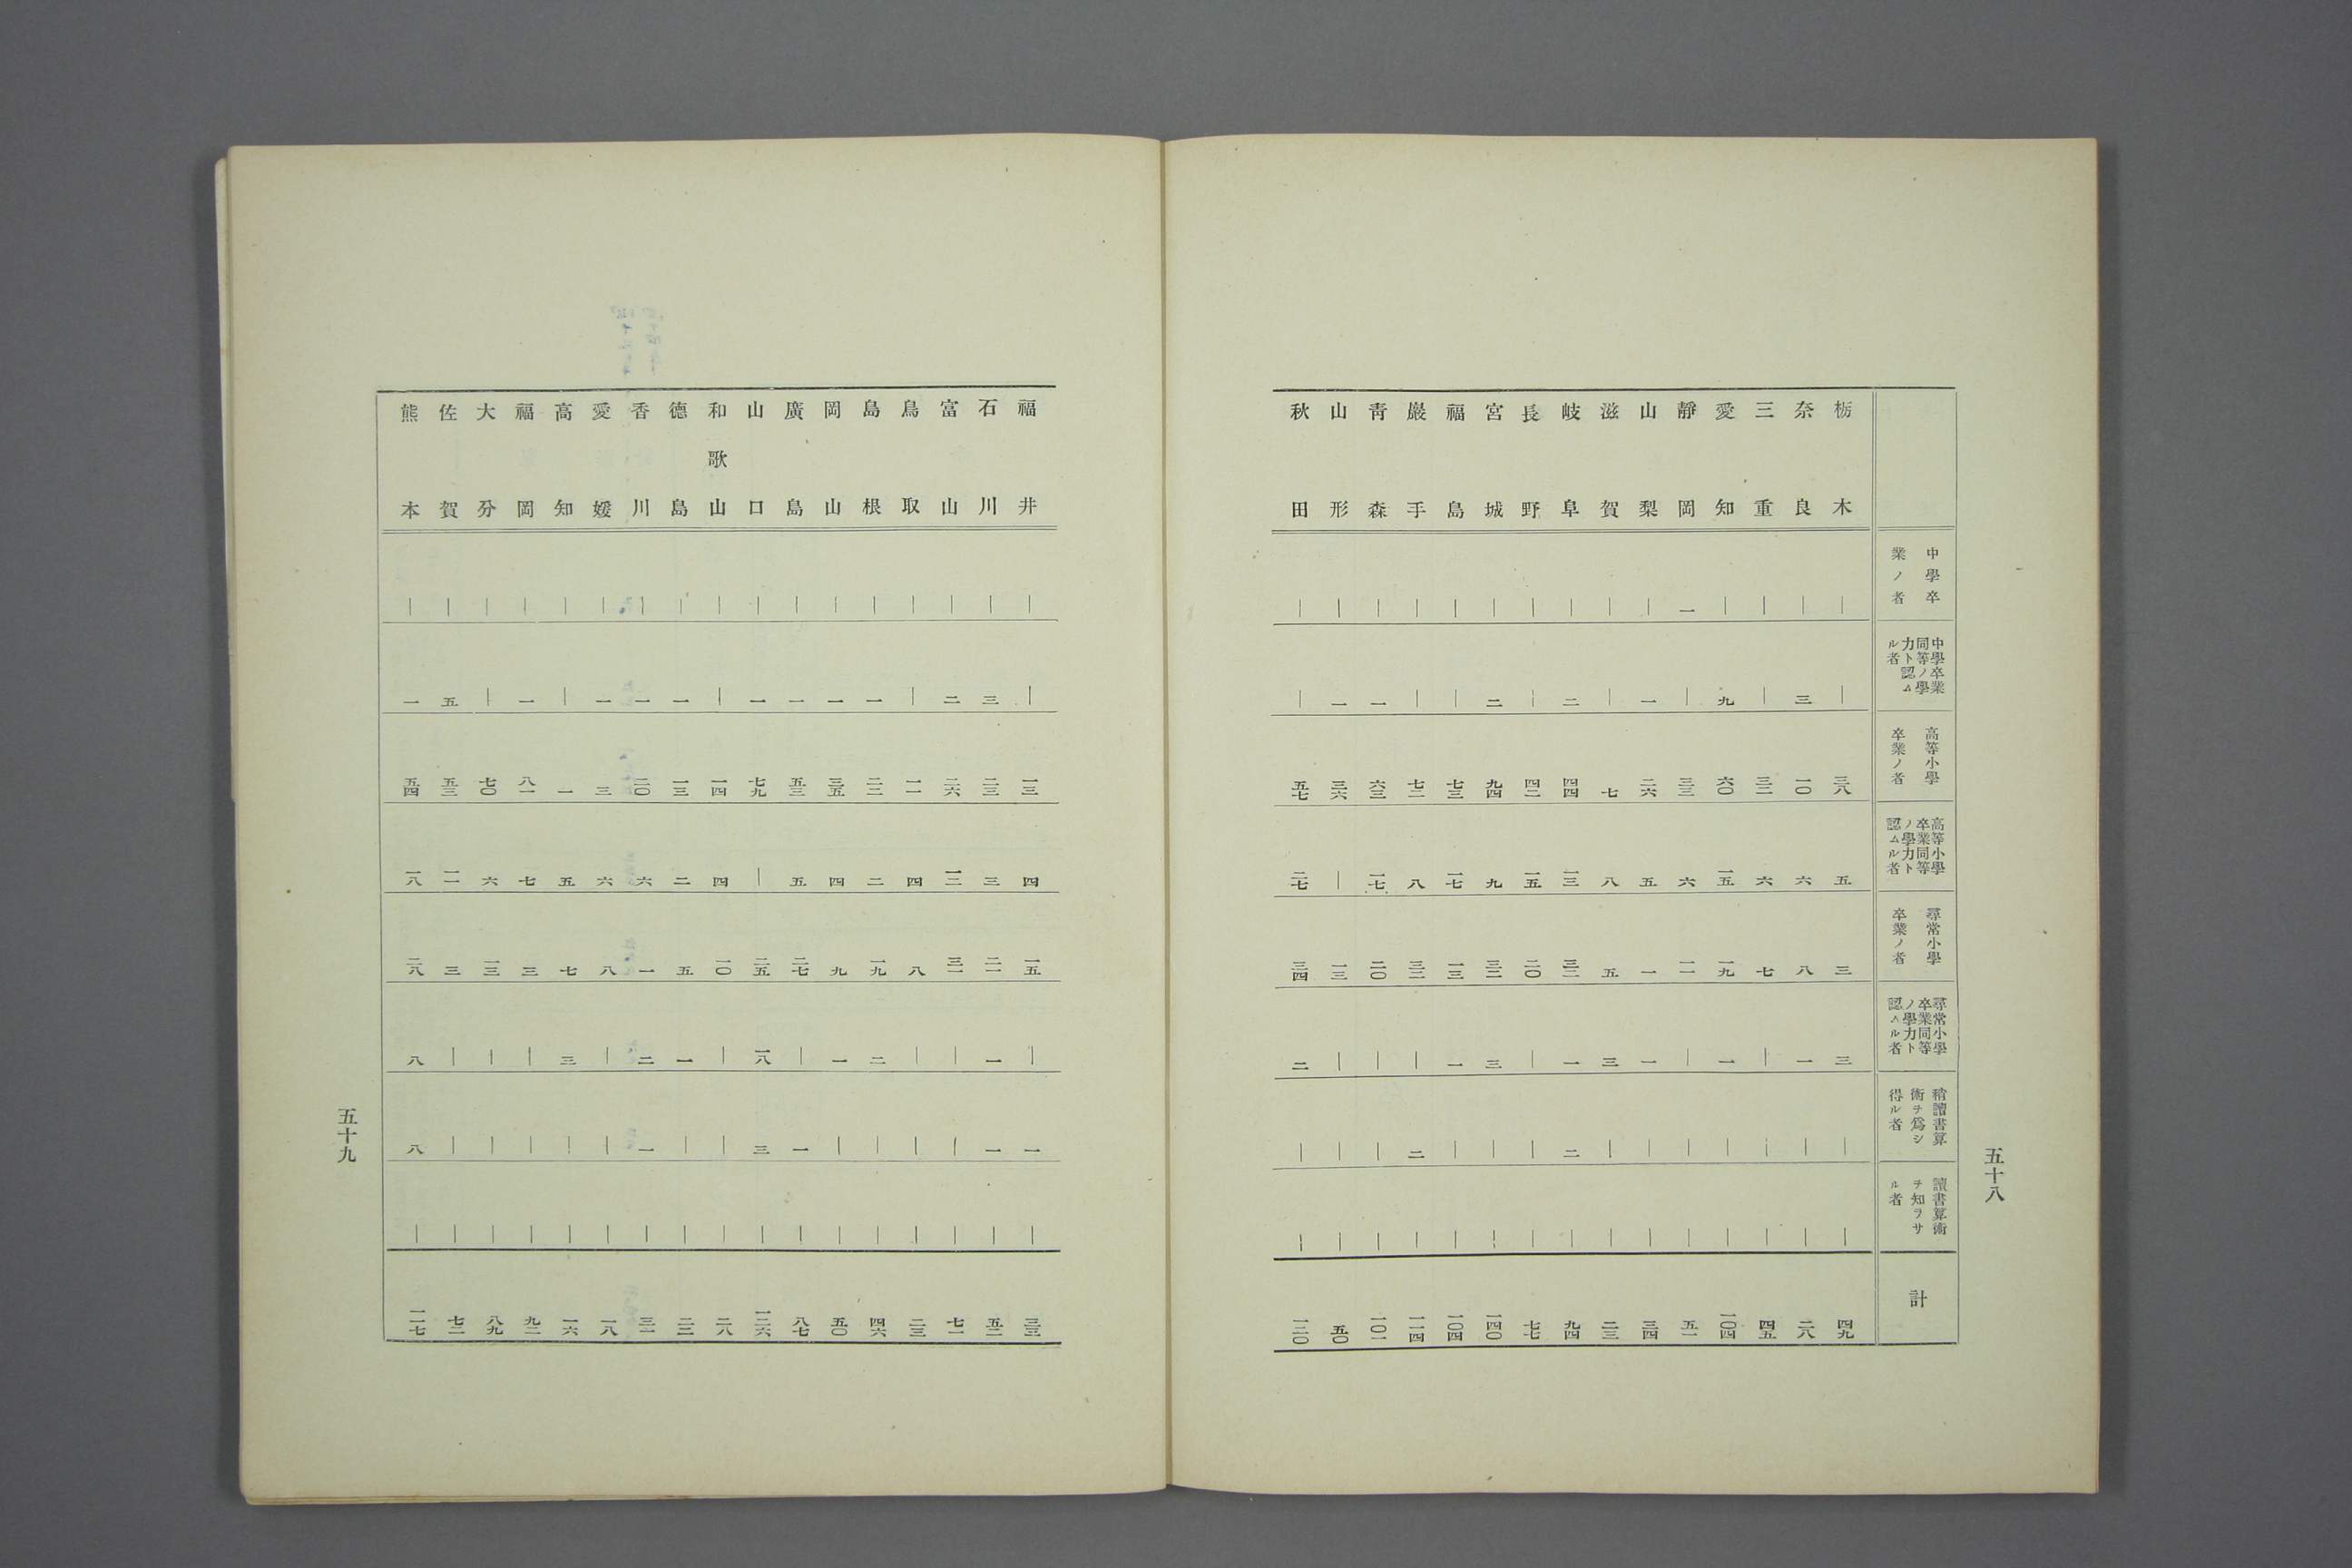 五十八
中學卒業ノ者
中學卒業同等ノ學力ト認ムル者
高等小學卒業ノ者
高等小學卒業同等ノ學力ト認ムル者
尋常小學卒業ノ者
尋常小學卒業同等ノ學力ト認ムル者
稍讀書算術ヲ爲シ得ル者
讀書算術ヲ知ラサル者
計
栃木 ― ― 三八 五 三 三 ― ― 四九
奈良 ― 三 一〇 六 八 一 ― ― 二八
三重 ― ― 三二 六 七 ― ― ― 四五
愛知 ― 九 六〇 一五 一九 一 ― ― 一〇四
靜岡 一 ― 三三 六 一一 ― ― ― 五一
山梨 ― 一 二六 五 一 一 ― ― 三四
滋賀 ― ― 七 八 五 三 ― ― 二三
岐阜 ― 二 四四 一三 三二 一 二 ― 九四
長野 ― ― 四二 一五 二〇 ― ― ― 七七
宮城 ― 二 九四 九 三二 三 ― ― 一四〇
福島 ― ― 七三 一七 一三 一 ― ― 一〇四
巖手 ― ― 七二 八 三二 ― 二 ― 一一四
靑森 ― 一 六三 一七 二〇 ― ― ― 一〇一
山形 ― 一 三六 ― 一三 ― ― ― 五〇
秋田 ― ― 五七 二七 三四 二 ― ― 一二〇
福井 ― ― 一三 四 一五 ― 一 ― 三三
石川 ― 三 二三 三 二一 一 一 ― 五二
富山 ― 二 二六 一二 三一 ― ― ― 七一
鳥取 ― ― 一一 四 八 ― ― ― 二三
島根 ― 一 二二 二 一九 二 ― ― 四六
岡山 ― 一 三五 四 九 一 ― ― 五〇
廣島 ― 一 五三 五 二七 ― 一 ― 八七
山口 ― 一 七九 ― 二五 一八 三 ― 一二六
和歌山 ― ― 一四 四 一〇 ― ― ― 二八
德島 ― 一 一三 二 五 一 ― ― 二二
香川 ― 一 二〇 六 一 二 一 ― 三一
愛媛 ― 一 三 六 八 ― ― ― 一八
高知 ― ― 一 五 七 三 ― ― 一六
福岡 ― 一 八一 七 三 ― ― ― 九二
大分 ― ― 七〇 六 一三 ― ― ― 八九
佐賀 ― 五 五三 一一 三 ― ― ― 七二
熊本 ― 一 五四 一八 二八 八 八 ― 一一七
五十九